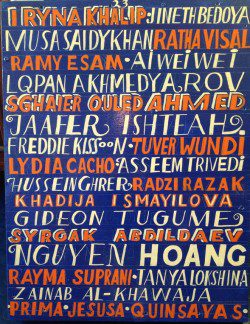 23
IRYNA KHALIP · JINETH BEDOYA
MUSA SAIDYKHAN · RATHA VISAL
RAMY ESAM · AI WEI WEI
LQPAN AKHMEDYAROV
SGHAIER OULED AHMED
JAAFER ISHTEAH
FREDDIE KISSOON · TUVER WUNDI
LYDIA CACHO · ASSEEM TRIVEDI
HUSSEIN GHRER · RADZI RAZAK
KHADIJA ISMAYILOVA
GIDEON TUGUME
SYRGAK ABDILDAEV
NGUYEN HOANG
RAYMA SUPRANI · TANYA LOKSHINA
ZAINAB AL-KHAWAJA
PRIMA · JESUSA · QUINSAYAS